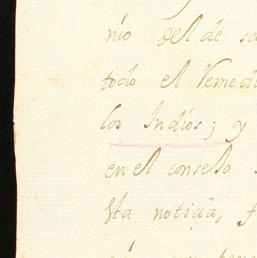 nio del de
todo el Remed
los Indios; y
en el consejo
sta noticia,